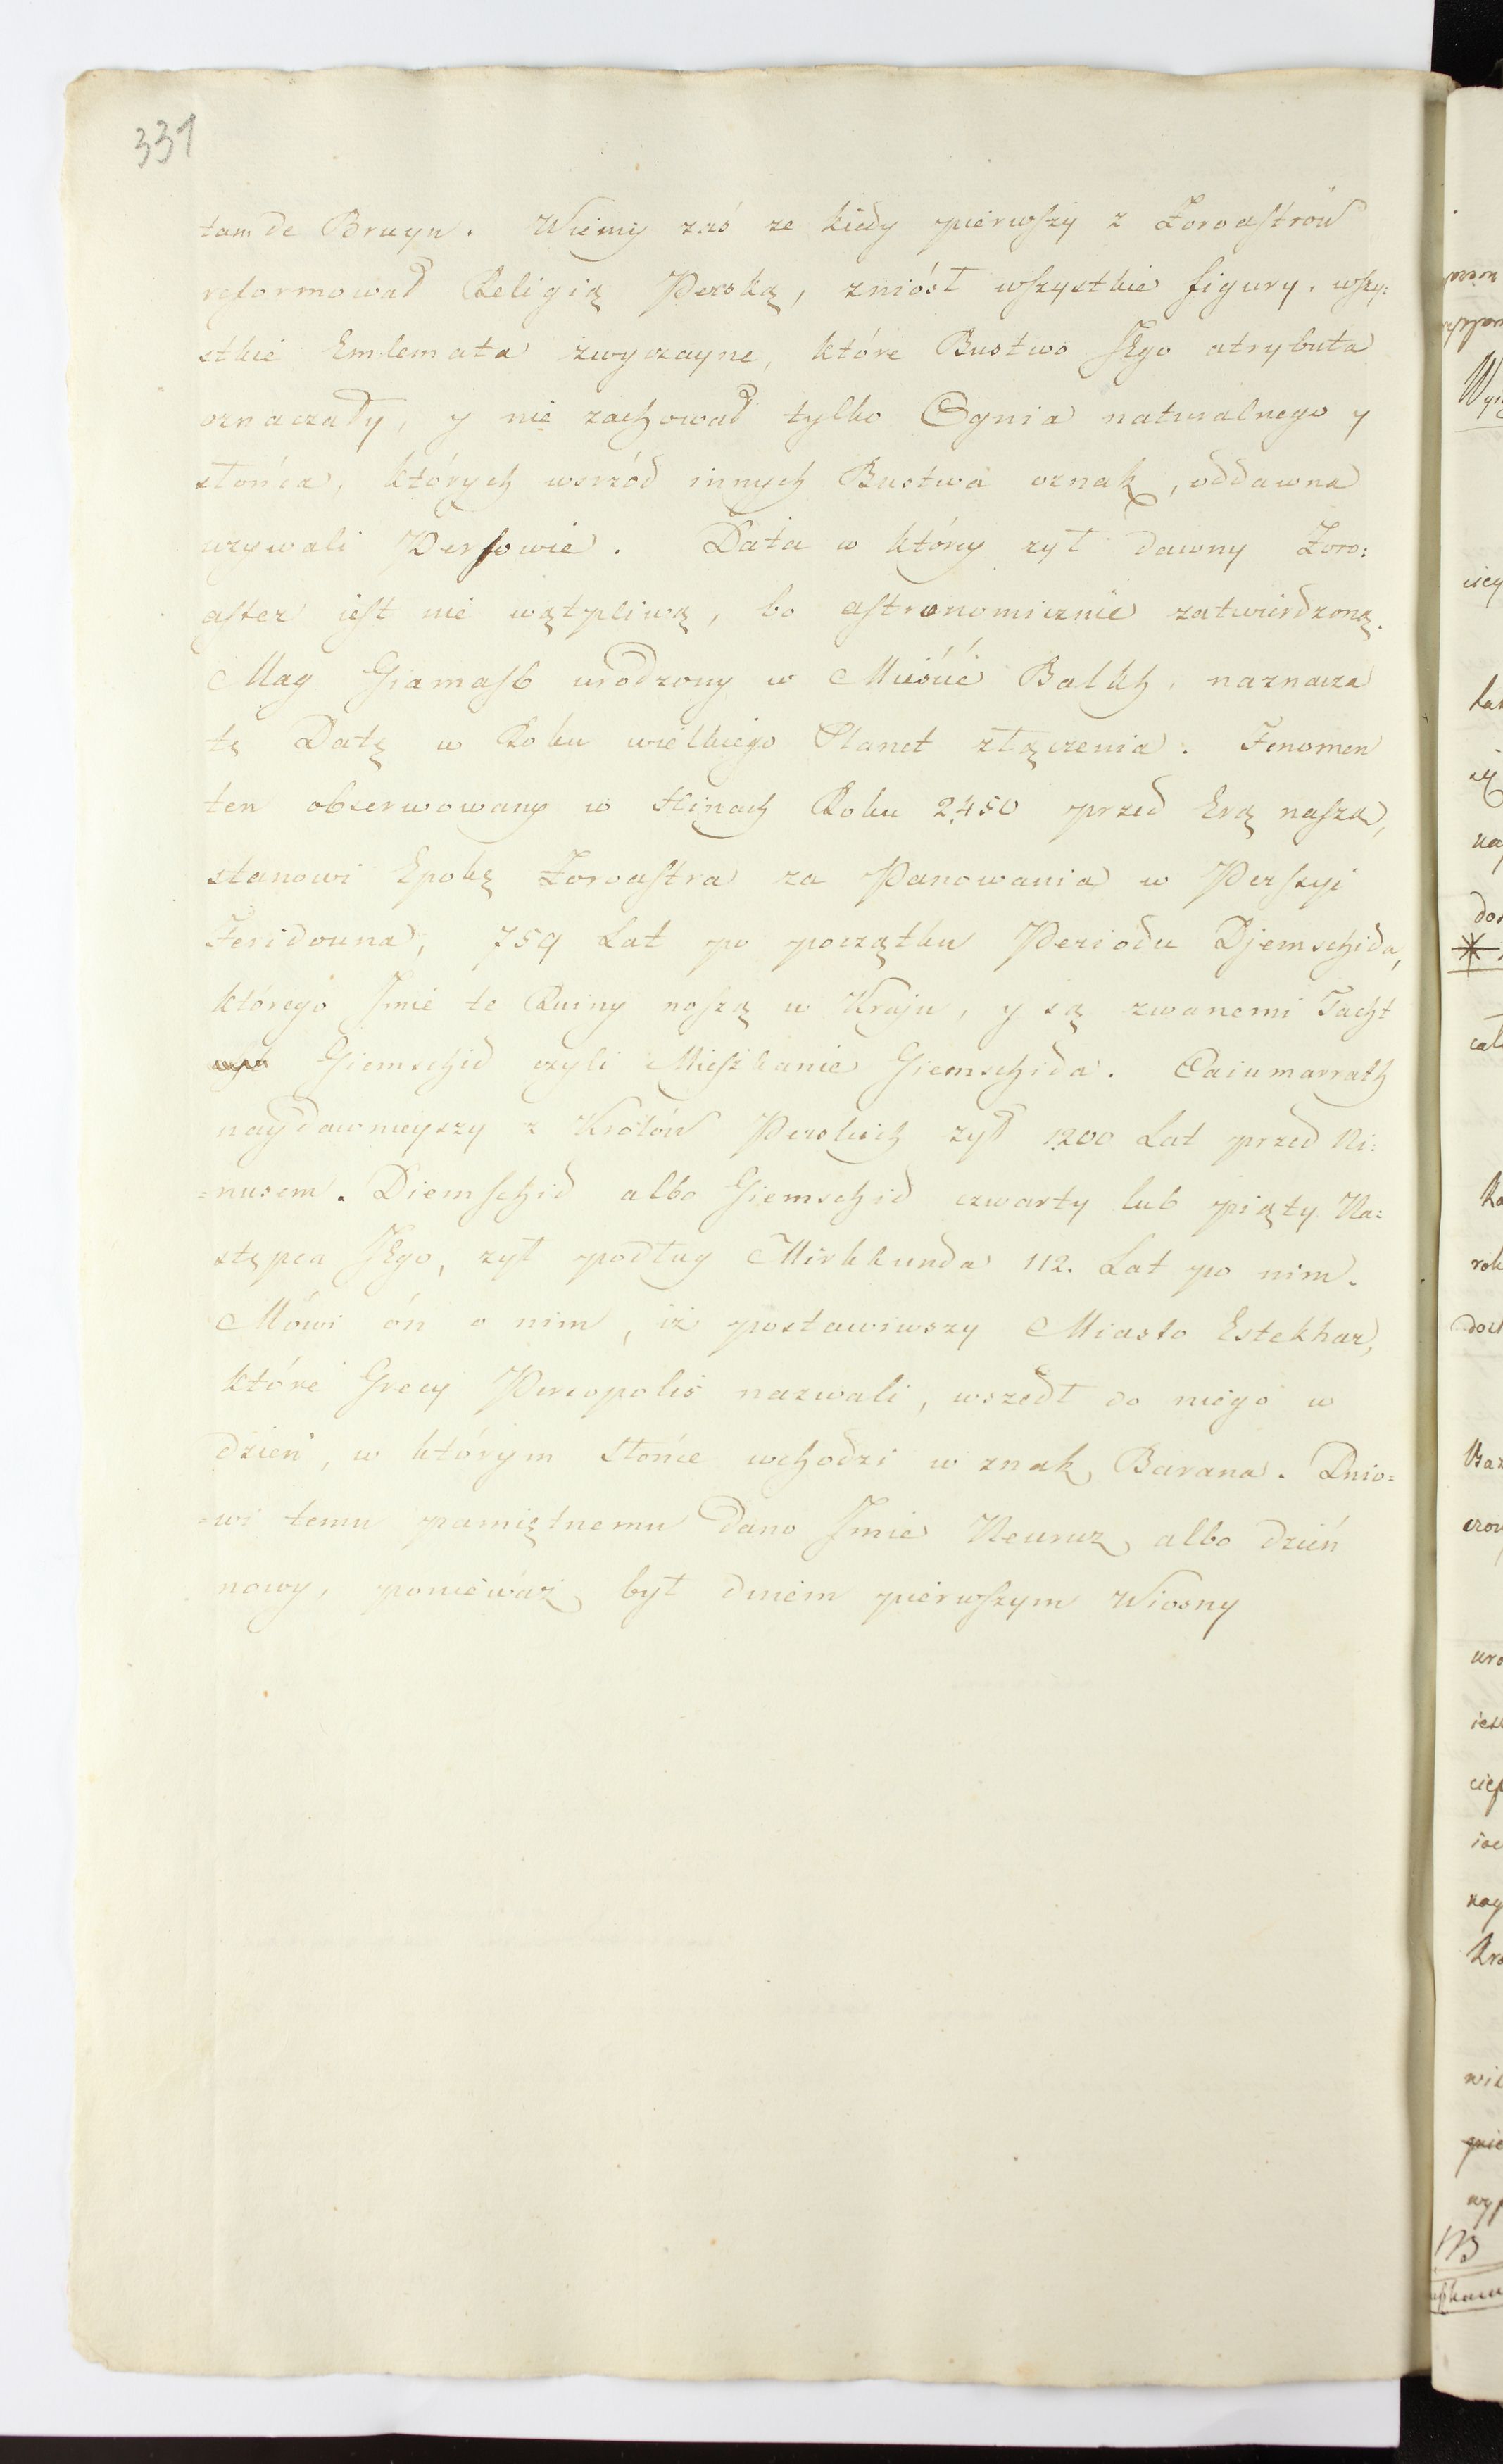 331
tam de Bruyn. Wiemy zaś ze kiedy pierwszy z Zoroastrów
reformował Religią Perską, zniósł wszystkie figury, wszy:
stkie Emlemata zwyczayne, które Bustwo Jego atrybuta
oznaczały, y nie zachował tylko Ognia naturalnego y
słońca, których wsrzód innych Bustwa oznak, oddawna
uzywali Persowie. Data w którey zył dawny Zoro:
aster iest nie wątpliwą, bo astronomicznie zatwierdzoną.
Mag Giamasb urodzony w Mieście Balkh, naznacza
tę Datę w Roku wielkiego Planet złączenia. Fenomen
ten obserwowany w Hinach Roku 2450 przed Erą naszą,
stanowi Epokę Zoroastra za Panowania w Perszyi
Feridouna, 759 Lat po początku Periodu Djemschida,
którego Jmie te Ruiny noszą w Kraju, y są zwanemi Tacht
Giemschid czyli Mieszkanie Giemschida. Caiumarrath
naydawnieyszy z Królów Perskich zył 1200 Lat przed Ni:
=nusem. Diemschid albo Giemschid czwarty lub piąty Na:
stępca Jego, zył podług Mirkkunda 112. Lat po nim.
Mówi ón o nim, iż postawiwszy Miasto Estekhar,
które Grecy Persopolis nazwali, wszedł do niego w
dzień, w którym słońce wchodzi w znak Barana. Dnio=
=wi temu pamiętnemu dano Jmie Neuruz, albo dzień
nowy, ponieważ był dniem pierwszym Wiosny